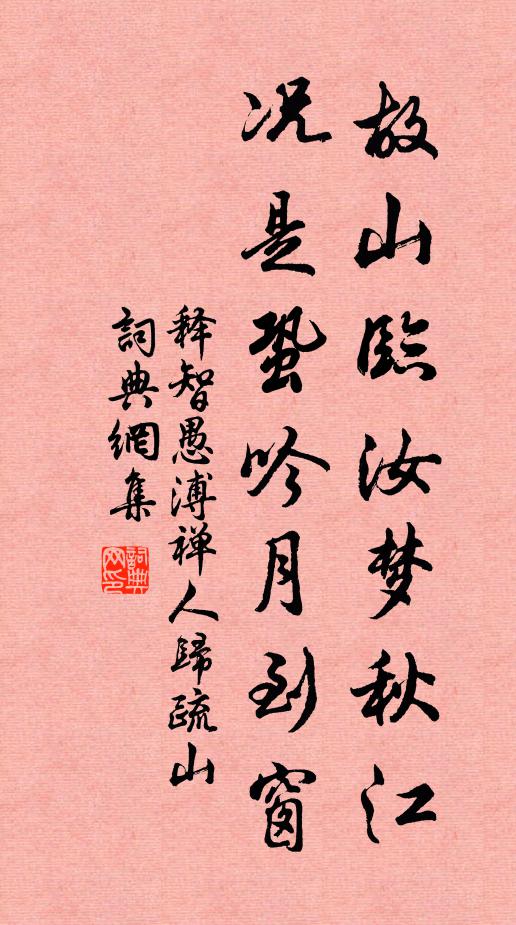 故山臨汝梦秋江
况是蛩吟月到窗
释智愚溥禅人歸疏山
詞典網集
詞典网印